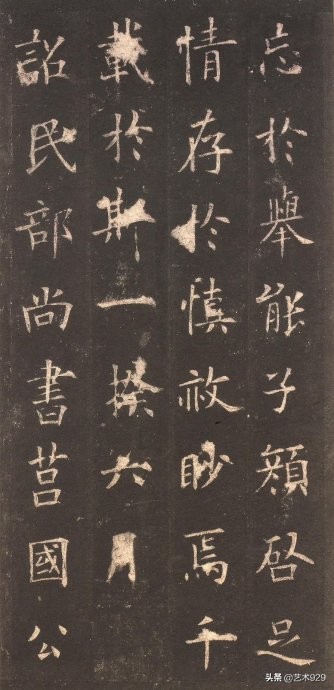 忘於舉能子顏啓足
情存於慎赦眇焉千
載於斯一揆六月
詔民部尚書莒國公
头条 @艺术929